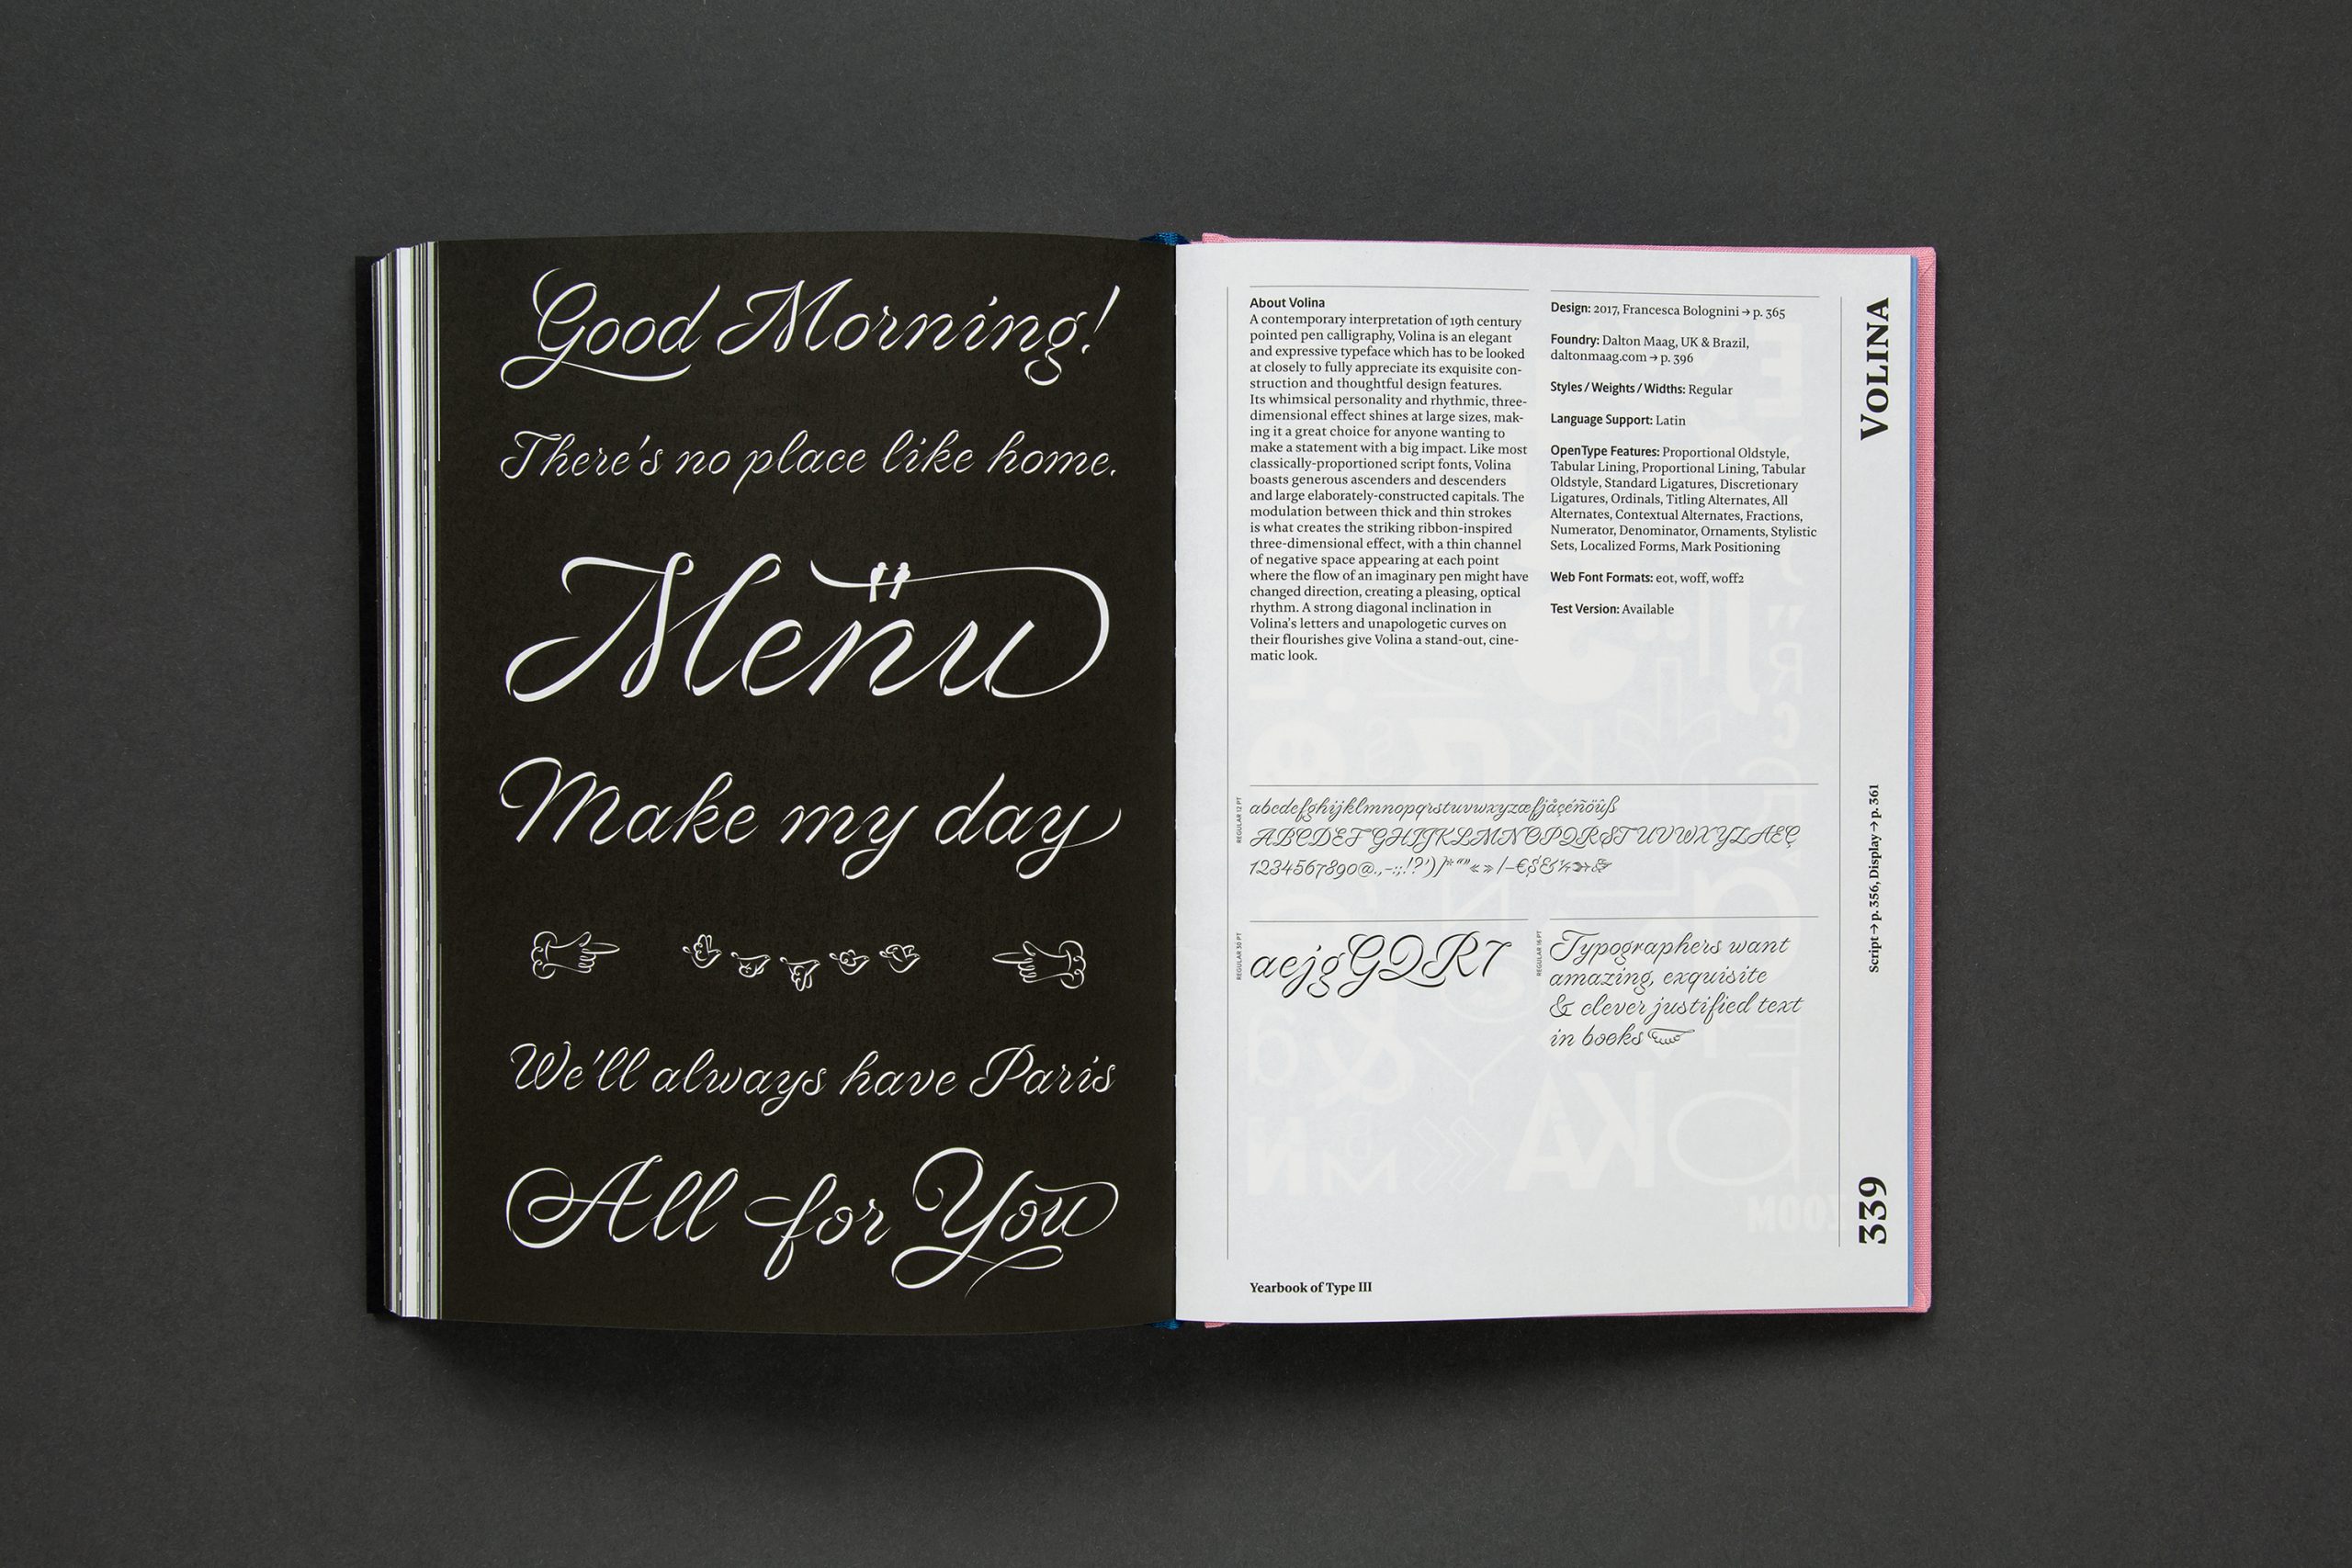 Good Morning!
There's no place like home.
Menu
Make my day
We'll always have Paris
All for You
About Volina
A contemporary interpretation of 19th century
pointed pen calligraphy, Volina is an elegant
and expressive typeface which has to be looked
at closely to fully appreciate its exquisite con-
struction and thoughtful design features.
Its whimsical personality and rhythmic, three-
dimensional effect shines at large sizes, mak-
ing it a great choice for anyone wanting to
make a statement with a big impact. Like most
classically-proportioned script fonts, Volina
boasts generous ascenders and descenders
and large elaborately-constructed capitals. The
modulation between thick and thin strokes
is what creates the striking ribbon-inspired
three-dimensional effect, with a thin channel
of negative space appearing at each point
where the flow of an imaginary pen might have
changed direction, creating a pleasing, optical
rhythm. A strong diagonal inclination in
Volina's letters and unapologetic curves on
their flourishes give Volina a stand-out, cine-
matic look.
Design: 2017, Francesca Bolognini → p. 365
Foundry: Dalton Maag, UK & Brazil,
daltonmaag.com → p. 396
Styles / Weights / Widths: Regular
Language Support: Latin
OpenType Features: Proportional Oldstyle,
Tabular Lining, Proportional Lining, Tabular
Oldstyle, Standard Ligatures, Discretionary
Ligatures, Ordinals, Titling Alternates, All
Alternates, Contextual Alternates, Fractions,
Numerator, Denominator, Ornaments, Stylistic
Sets, Localized Forms, Mark Positioning
Web Font Formats: eot, woff, woff2
Test Version: Available
REGULAR 12 PT
abcdefghijklmnopqrstuvwxyzæfjåçéñöûß
ABCDEFGHIJKLMNOPQRSTUVWXYZÆÇ
1234567890@.,-:;!?')]*“”«»/–€$&½
REGULAR 30 PT
aejgGQR7
REGULAR 16 PT
Typographers want
amazing, exquisite
& clever justified text
in books
VOLINA
Script → p. 356, Display → p. 361
339
Yearbook of Type III